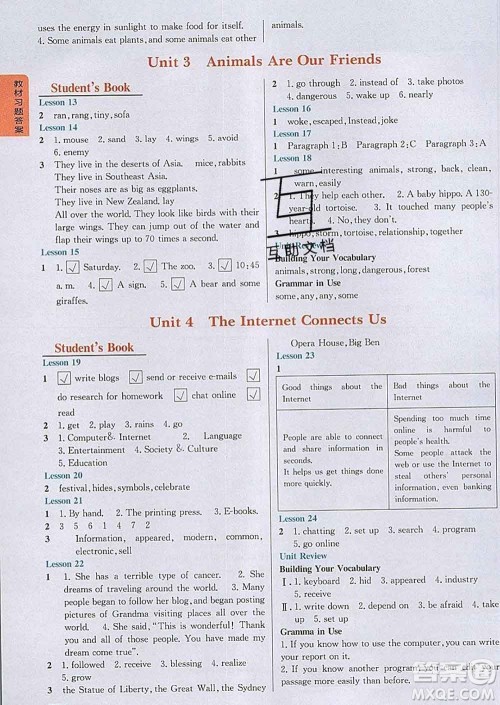 uses the energy in sunlight to make food for itself.
4. Some animals eat plants, and some animals eat other
animals.
Unit 3 Animals Are Our Friends
教材习题答案
Student's Book
Lesson 13
2 ran, rang, tiny, sofa
Lesson 14
2 1. mouse 2. sand 3. lay 4. wings 5. avoid
6. enemy
3 They live in the deserts of Asia. mice, rabbits
They live in Southeast Asia.
Their noses are as big as eggplants.
They live in New Zealand, lay
All over the world. They look like birds with their
large wings. They can jump out of the water and
flap their wings up to 70 times a second.
Lesson 15
1 1. ✓ Saturday. 2. ✓ The zoo. 3. ✓ 10:45
a. m. 4. ✓ A sign. 5. ✓ A bear and some
giraffes.
2 1. go through 2. instead of 3. take photos
4. danger 5. disappear
Lesson 16
1 woke, escaped, Instead, joke
Lesson 17
1 Paragraph 1:B Paragraph 2:C Paragraph 3:A
Lesson 18
1 some, interesting animals, strong, back, clean,
warn, easily
2 1. They help each other. 2. A baby hippo. A 130-
year-old tortoise. 3. It touched many people's
hearts. 4. No, they don't.
3 hippo, storm, tortoise, relationship, together
Unit Review
Building Your Vocabulary
animals, strong, long, dangerous, forest
Grammar in Use
some, any, any, some
互
互助文档
Unit 4 The Internet Connects Us
Student's Book
Lesson 19
1 ✓ write blogs ✓ send or receive e-mails
✓ do research for homework ✓ chat online ✓
read
2 1. get 2. play 3. rains 4. go
3 1. Computer & Internet 2. Language
3. Entertainment 4. Society & Culture
5. Education
Lesson 20
2 festival, hides, symbols, celebrate
Lesson 21
2 1. By hand. 2. The printing press. 3. E-books.
2. 1 2 4 5 3
3 Information, appeared, modern, common,
electronic, sell
Lesson 22
1 1. She has a terrible type of cancer. 2. She
dreams of traveling around the world. 3. Many
people began to follow her blog, and began
posting pictures of Grandma visiting places all over
the world. 4. She said, "This is wonderful! I
never thought it would happen. You have made my
dream come true".
2 1. followed 2. receive 3. blessing 4. realize
5. grow
3 the Statue of Liberty, the Great Wall, the Sydney
Opera House, Big Ben
Lesson 23
1
Good things about the Internet
Bad things about the Internet
People are able to connect
and share information in
seconds.
It helps us get things done
more quickly.
Spending too much time
online is harmful to
people's health.
Some people attack the
web or use the Internet to
steal others' personal
information, even breaking
personal bank accounts.
Lesson 24
2 1. chatting 2. set up 3. search 4. program
5. go online
Unit Review
Building Your Vocabulary
Ⅰ. 1. keyboard 2. hid 3. appeared 4. industry
5. receive
Ⅱ. 1. write down 2. depend on 3. set up 4. take
up 5. wake up
Gramma in Use
1. If you know how to use the computer, you can write
your report on it.
2. If you know another program, you can edit your essay
more easily than before.
答案圈
MXQE.COM